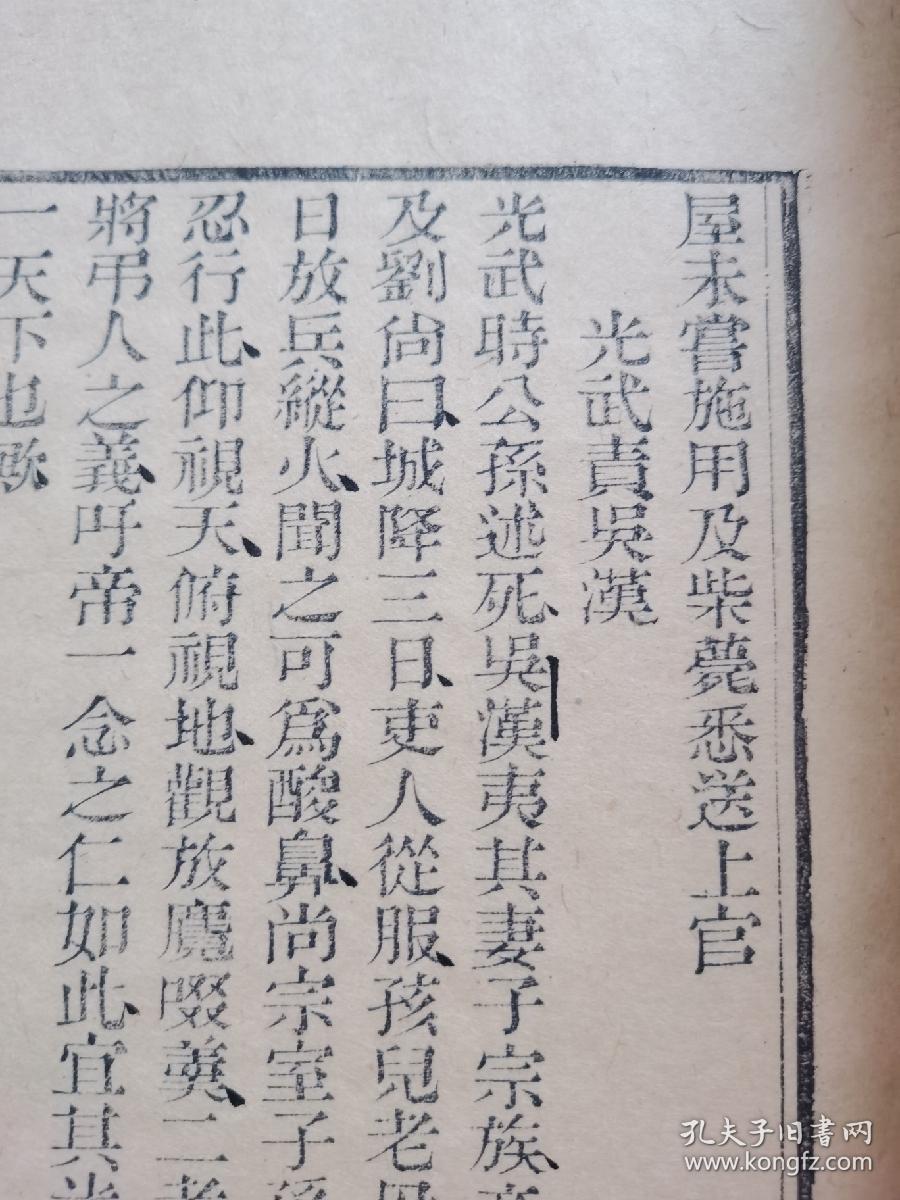 屋未嘗施用及柴薨悉送上官
光武責吳漢
光武時公孫述死、吳漢夷其妻子宗族、
及劉尙曰、城降三日、吏人從服、孩兒老
日放兵縱火、聞之可爲酸鼻、尙宗室子
忍行此、仰視天、俯視地、觀放麑啜羹、二
將弔人之義、吁帝一念之仁如此、宜其
一天下也歟
孔夫子旧书网
www.kongfz.com